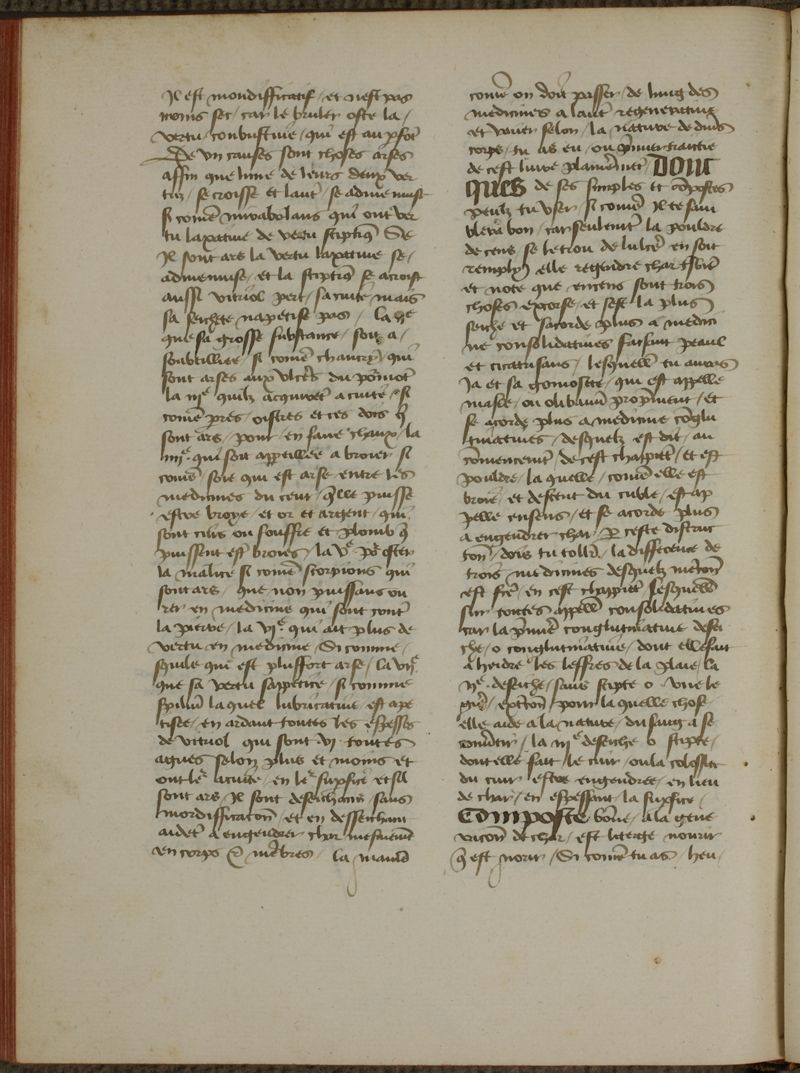 Il est mondifficatif / et nest pas
moins sec / car le bruler oste la /
vertu / conbustiue / qui est au
De vn causes sont choses arses
affin que lune de leurs deux ver
tuz / se croisse et lautre / se adminuist
si comme mirabolans qui ont ver
tu laxatiue de vertu stiptiq̃ Se
Il sont ars la vertu laxatiue se /
adminuise / et la stiptiq̃ se acroist
aussi vitriol pert / sacuite mais
sa seichete napetise pas / la
que sa grosse substance / soit a /
soubtilliee / si comē chancre qui
sont arses aux vlcers du
la iiiᵉ quilz acquierēt acuite / si
comē / oistres et ces dois
sont ars / pour / en faire chaux / la
iiiiᵉ qui soit appeillee a broier si
comē / soie qui est arse entre les
medicines du ceur / q̃lle puisse
estre broye / et or et argent / qui
sont cuis ou souffre et plomb q̃
puissent estr̃ broies / la vᵉ po᷑ oster
la malice si comē scorpions qui
sont ars / que non puissans ou
rer / en medicine qui sont cont᷑
la pierre / la viᵉ qui ait plus de
vertu en medicine / Si comme /
squile qui est plusfort arse / la viiᵉ
que sa vertu sappetice / si comme
laquel lubricatiue / est ape
tisse / en ardant toutes les especes
de vitriol qui sont vi toutes
agues selon plus et moins et
ont le᷑ acuite / en le᷑ supfice et sil
sont ars / Il sont deseichans / sans
mordifficacōn / et en dessenchant
aidēt a engendrer char mesmemēt
en corps mēbres / la maniē
comē on doit passer / de lung des
medicines a lautr̃ regeneratiue
et varier selon / la nature de diu᷑s
corps / tu as eu / ou p̃mier traictie
de cest liure planierem̃t / DONC
QUES de ses simples et cōpostes
peulz tu vser / si comē Il te sem
blera bon / car seulemēt la pouldre
de cens / se le trou de lulcer en soit
remply / elle regendre char
et note que encens sont trois
choses escorse / et la plus
seiche et sacorde plus a medici
ne consolidatiues faisant peaul
et cicatrisans / lesquelles tu auras
Ja et sa gomosite / qui est appelle
masle / ou olibanū proprment / et
se acorde plus a medicine cōglu
tinatiues / desquelz est dit / au
cōmencemēt / de cest chappitr̃ / et est
pouldre / la quelle / comē elle est
broie / et descent du cuble / est ap
pelle ensens / et se acorde plus
a engendrer char / ꝑ ceste distruc
cōn / dois tu tollir̃ / la difference de
trois medicines desquelz mētion
est fc̃e / en cest chappitr̃ lesquelles
sur toutes appellēt consolidatiues
car la p̃mier̃ conglutinatiue desei
che / o conglutinaciue / dont elle fait
aherdre / les leffres de la plaie / la
iiᵉ deseiche / sans stipte o vne le
gier̃ / pour la quelle chose
elle aide a la nature / du sang a se
conu᷑tir / la iiiᵉ deseiche o stipte /
dont elle fait / le cuir / ou la
du cuir / estre engendree / en lieu
de char / en espessant / la supfice /
Composte bōne / a la gene
racōn / de char / est literge nourir
q̃ est norir / Si comē tu as / heu /